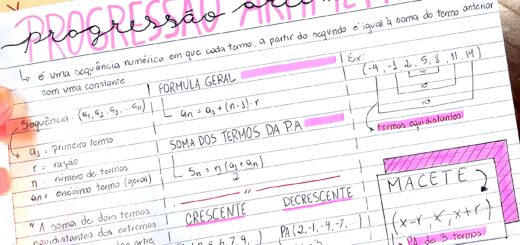 PROGRESSÃO ARITMÉTICA
progressão
↳ é uma sequência numérica em que cada termo, a partir do segundo é igual à soma do termo anterior
com uma constante
Sequência: (a₁, a₂, a₃, ... Sn)
a₁ = primeiro termo
r = razão
n = número de termos
an = enézimo termo (geral)
"A soma de dois termos
equidistantes dos extremos
FÓRMULA GERAL
an = a₁ + (n-1) · r
SOMA DOS TERMOS DA P.A
Sn = n (a₁ + an)
2
CRESCENTE
6, 7, 9, ...)
DECRESCENTE
PA (2, -1, -4, -7, ...)
Ex:
(-4, -1, 2, 5, 8, 11, 14)
10
10
10
termos equidistantes
MACETE
(x-r, x, x+r)
PA de 3 termos